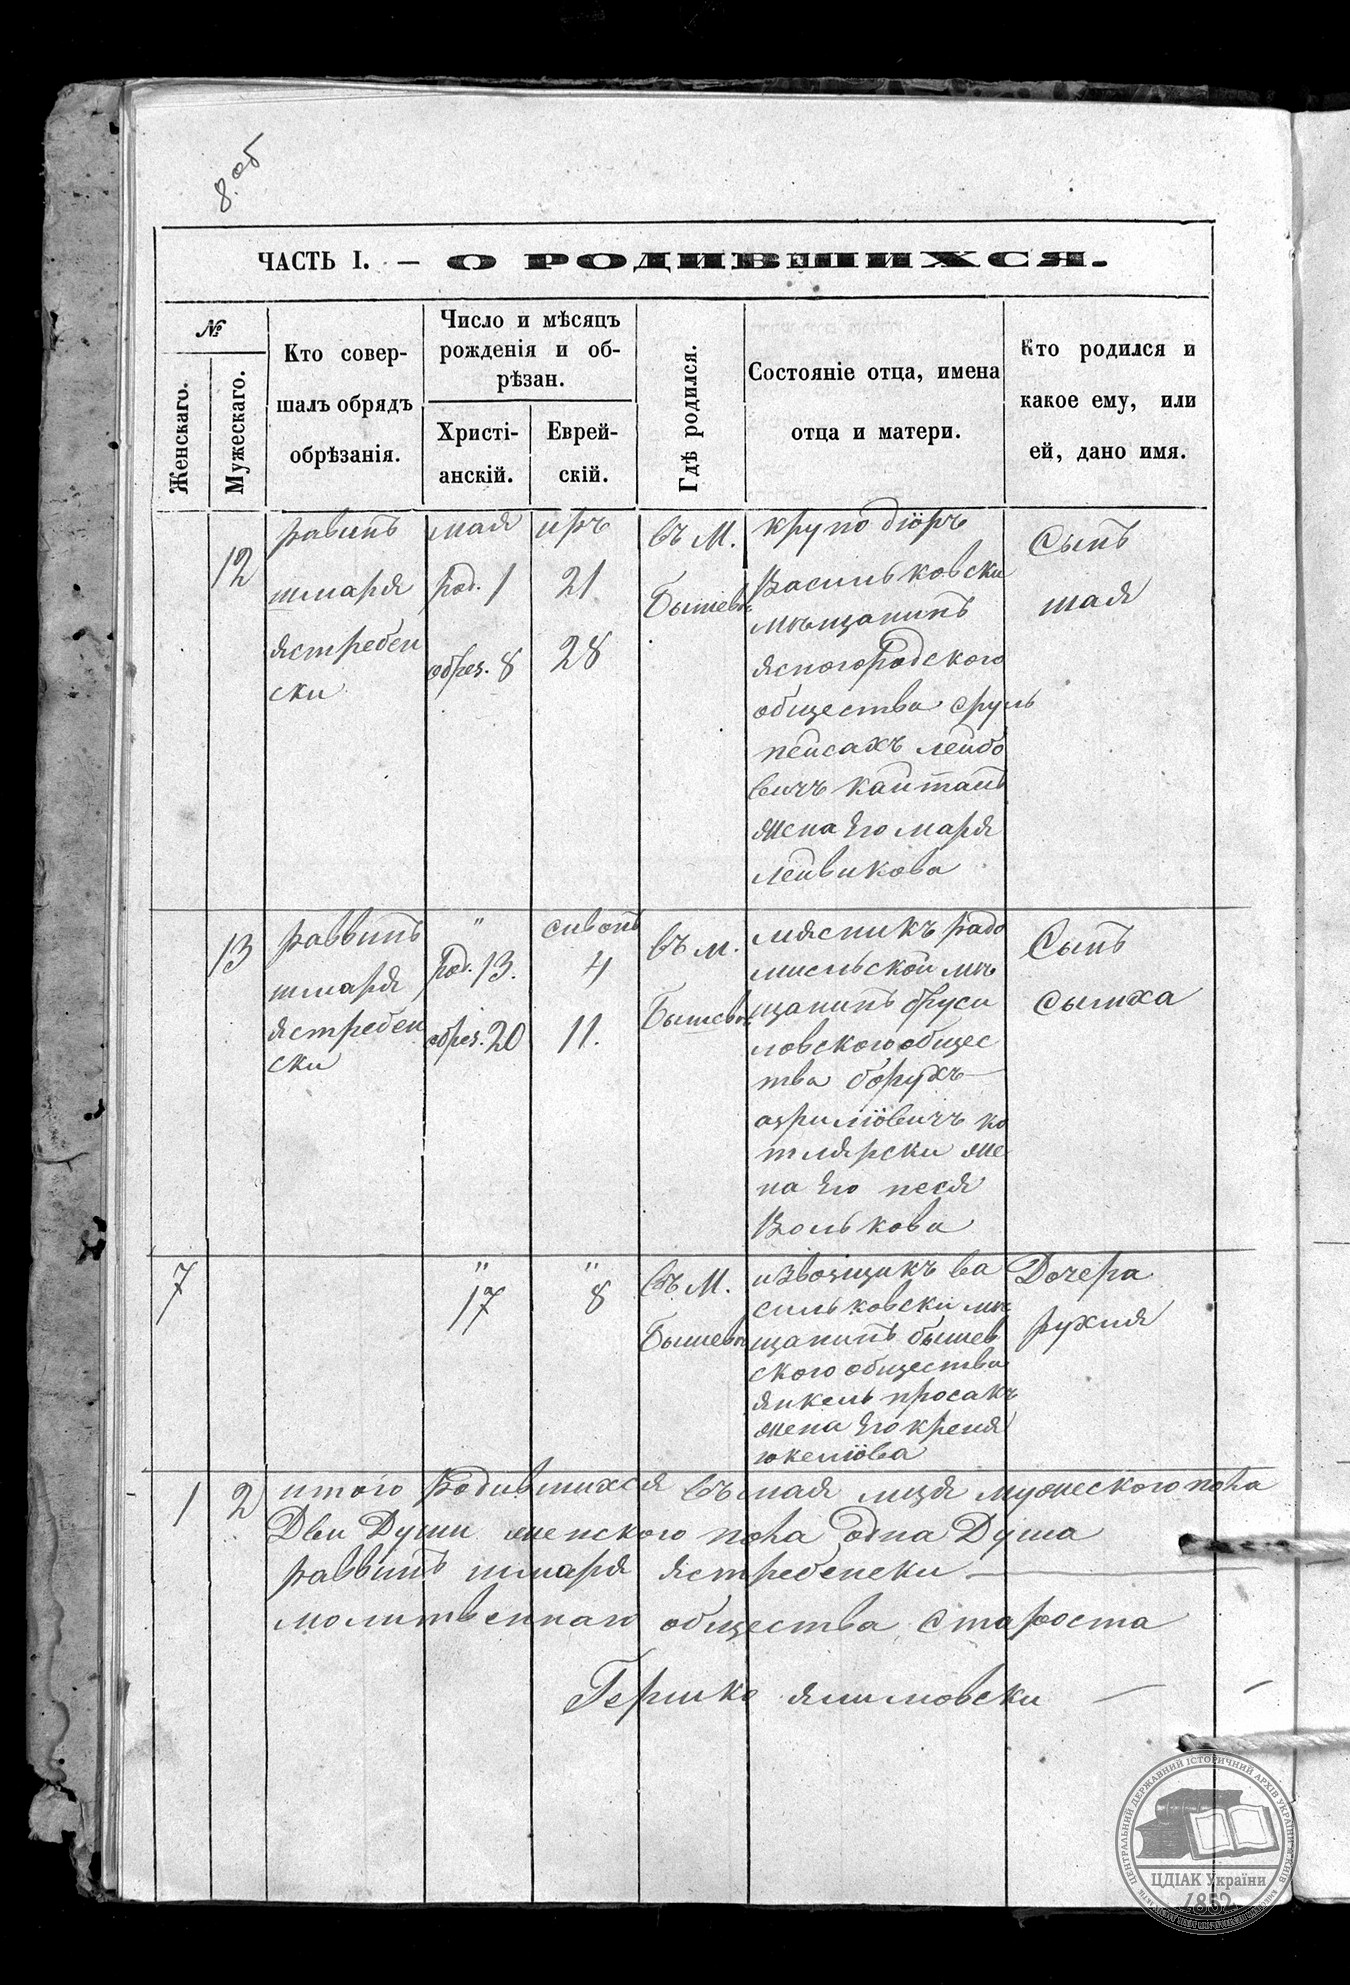 8 об
ЧАСТЬ I. — О РОДИВШИХСЯ.
№
Женскаго.
Мужескаго.
Кто совер-
шалъ обрядъ
обрѣзанія.
Число и мѣсяцъ
рожденія и об-
рѣзан.
Христі-
анскій.
Еврей-
скій.
Гдѣ родился.
Состояніе отца, имена
отца и матери.
Кто родился и
какое ему, или
ей, дано имя.
12
равинъ
шмаря
ястребен
ски
мая
род. 1
обрез. 8
иръ
21
28
въ М.
Бышевъ
крупо діоръ
Васильковски
мѣщанинъ
ясногородского
общества сруль
пейсахъ лейбо
вичъ кантанъ
жена Его маря
лейвикова
Сынъ
шая
13
раввинъ
шмаря
ястребен
ски
"
род. 13.
обрез. 20
сивонъ
4
11.
въ м.
Бышевъ
мясникъ радо
мисльской мѣ
щанинъ бруси
ловского общес
тва борухъ
азриліовичъ ко
тлярски же
на Его песя
Волькова
Сынъ
сымха
7
"
17
"
8
въ М.
Бышевъ
извощикъ ва
сильковски мѣ
щанинъ бышев
ского общества
янкель просакъ
жена Его креня
юкеліова
Дочера
рухля
1
2
итого Родившихся въ мая мця мужеского пола
Дви Души женского пола одна Душа
раввинъ шмаря ястребенски —
молитвеннаго общества староста
Гершко ялимовски — —
ЦЕНТРАЛЬНИЙ ДЕРЖАВНИЙ ІСТОРИЧНИЙ АРХІВ УКРАЇНИ м. КИЇВ
ЦДІАК України
1852